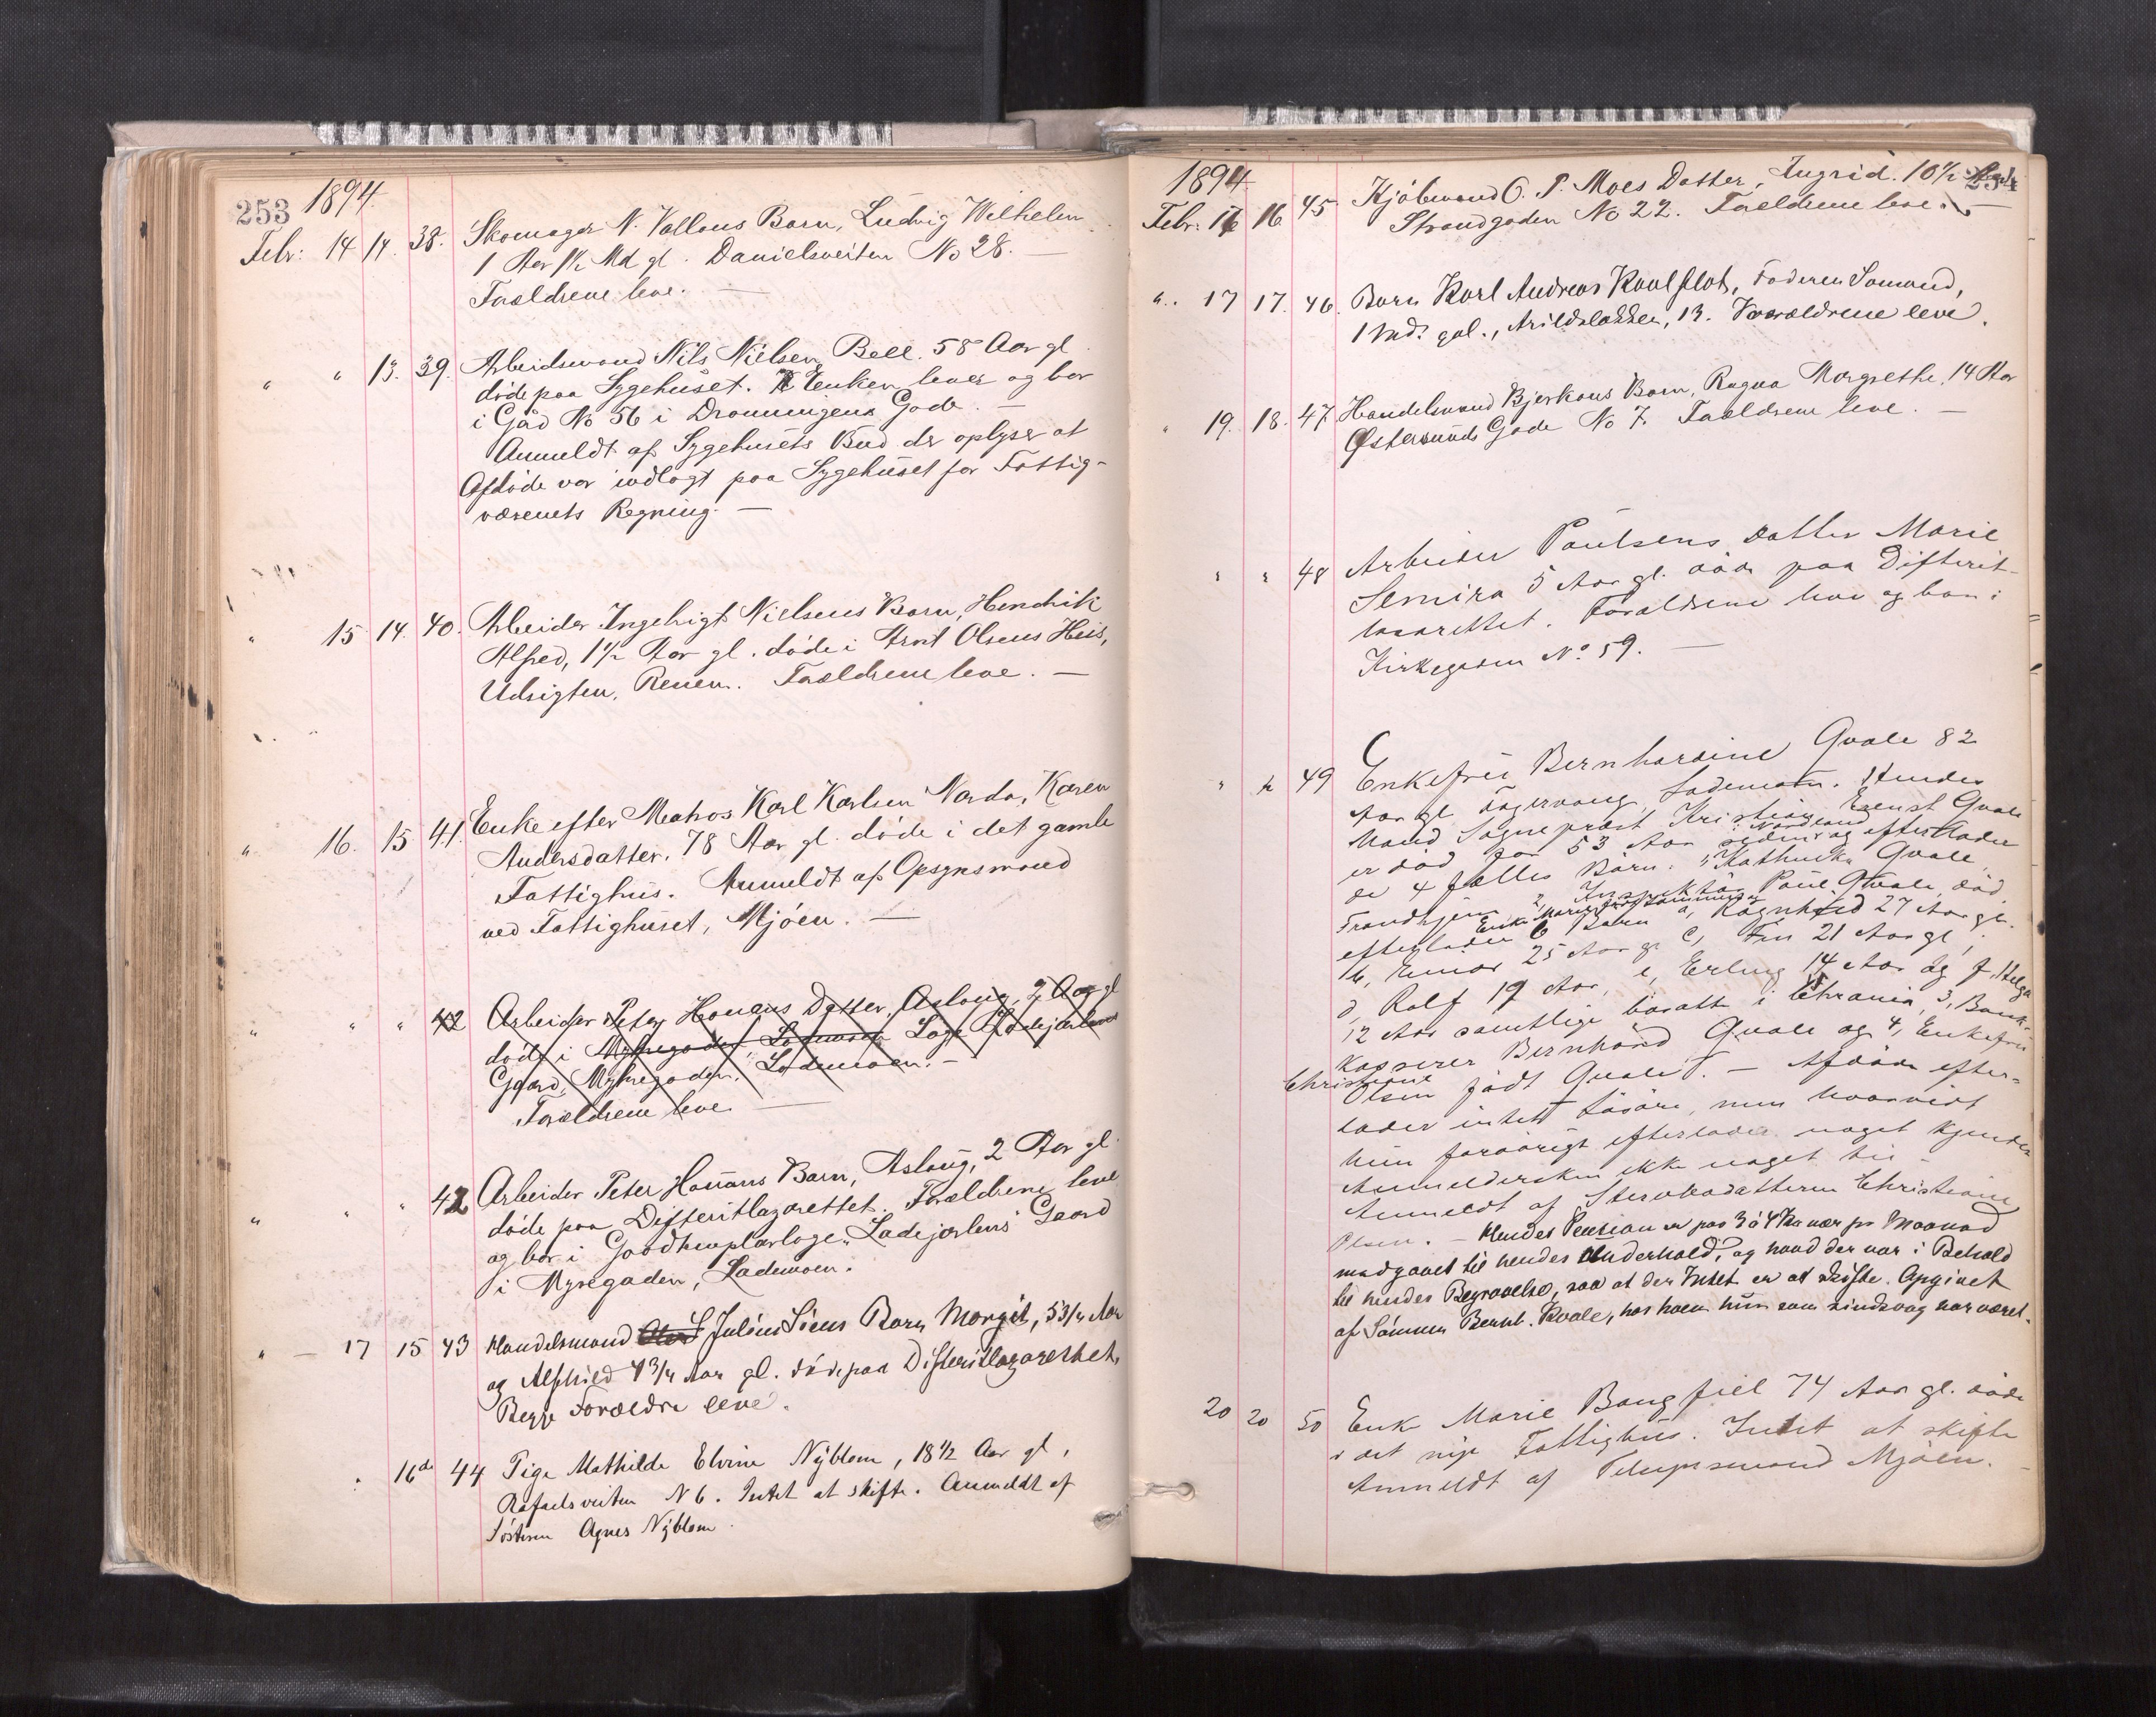 253 1894
Febr: 14 14. 38. Skomager N. Vallous Barn, Ludvig Wilhelm
1 Aar 1½ Md gl. Danielsveiten No 28. —
Forældrene leve. —
" " 13. 39. Arbeidsmand Nils Nielsen Bell. 58 Aar gl
døde paa Sygehuset. Enken lever og bor
i Gåd No 56 i Dronningens Gade. —
Anmeldt af Sygehusets Bud der oplyser at
Afdøde var indlagt paa Sygehuset for Fattig-
væsenets Regning. —
" 15 14. 40. Arbeider Ingebrigt Nielsens Barn, Hendrik
Alfred, 1½ Aar gl. døde i Arnt Olsens Hus,
Udsigten, Renen. Forældrene leve. —
" 16. 15 41. Enke efter Matros Karl Karlsen Narda, Karen
Andersdatter. 78 Aar gl. døde i det gamle
Fattighus. Anmeldt af Opsynsmand
ved Fattighuset, Mjöen. —
" " " 42 Arbeider Peter Honans Datter, Aslaug, 2 Aar gl
døde i Myhregaden Lademoen Loge Ladejarlens
Gaard, Myhregaden, Lademoen. —
Forældrene leve. —
" " " 42 Arbeider Peter Honans Barn, Aslaug, 2 Aar gl
døde paa Difteritlazarettet. Forældrene leve
og bor i Goodtemplarloge "Ladejarlens" Gaard
i Myregaden, Lademoen.
" — 17 15 43 Handelsmand Julius Siems Barn Margit, 5 3/4 Aar
og Alfhild 4 3/4 Aar gl. døde paa Difteritlazarettet,
Begge Forældre leve.
16de 44 Pige Mathilde Elvine Nyblom, 18 1/2 Aar gl,
Rafaelsveiten N 6. Intet at skifte. Anmeldt af
Søsteren Agnes Nyblom.
1894 254
Febr: 16 16 45 Kjøbmand O. P. Moes Datter, Ingrid. 10½
Strandgaden No 22. Forældrene leve. —
". 17 17. 46. Barn Karl Andreas Kaalflot, Faderen Sømand,
1 Md. gal., Arildsløkken, 13. Forældrene leve.
" 19. 18. 47. Handelsmand Bjerkans Barn, Ragna Margrethe, 14 Aar
Østersunds Gade No 7. Forældrene leve. —
" " 48 Arbeider Paulsens datter Marie
Elmira 5 Aar gl. død paa Difterit-
lazarettet. Forældrene leve og bor i
Kirkegaden No 59. —
" " 49 Enkefru Bernhardine Qvale 82
Aar gl Fagervang, Lademoen. Hendes
Mand Sognepræst Kristian Ernst Qvale
er død for 53 Aar siden i Nordland og efterlader
de 4 fælles Börn: 1, Kathinka Qvale,
Trondhjem 2, Inspektør Paul Qvale, død
efterlader Enke Marie født 6 Børn a, Ragnhild 27 Aar gl.
b, Einar 25 Aar gl c, Finn 21 Aar gl,
d, Rolf 19 Aar, e, Erling 14 Aar og f, Helga
12 Aar samtlige bosatte i Chrania, 3, Bank-
kasserer Bernhard Qvale og 4, Enkefru
Christiane Olsen født Qvale. — Afdøde efter-
lader intet Løsøre, men hvorvidt
hun forøvrigt efterlader noget kjender
Anmeldersken ikke noget til —
Anmeldt af Stervbodatteren Christiane
Olsen. — Hendes Pension er paa 3 à 4 Kroner pr Maaned
medgaaet til hendes Underhold, og hvad der var i Behold
til hendes Begravelse, saa at der Intet er at skifte. Opgivet
af Sønnen Bernh. Kvale, hos hvem hun som sindssvag har været.
20 20 50 Enke Marie Bangfiel 74 Aar gl. døde
i det nye Fattighus. Intet at skifte
Anmeldt af Tilsynsmand Mjöen. —